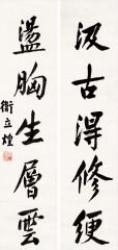 汲古得修绠
盪胸生層雲
衛立煌